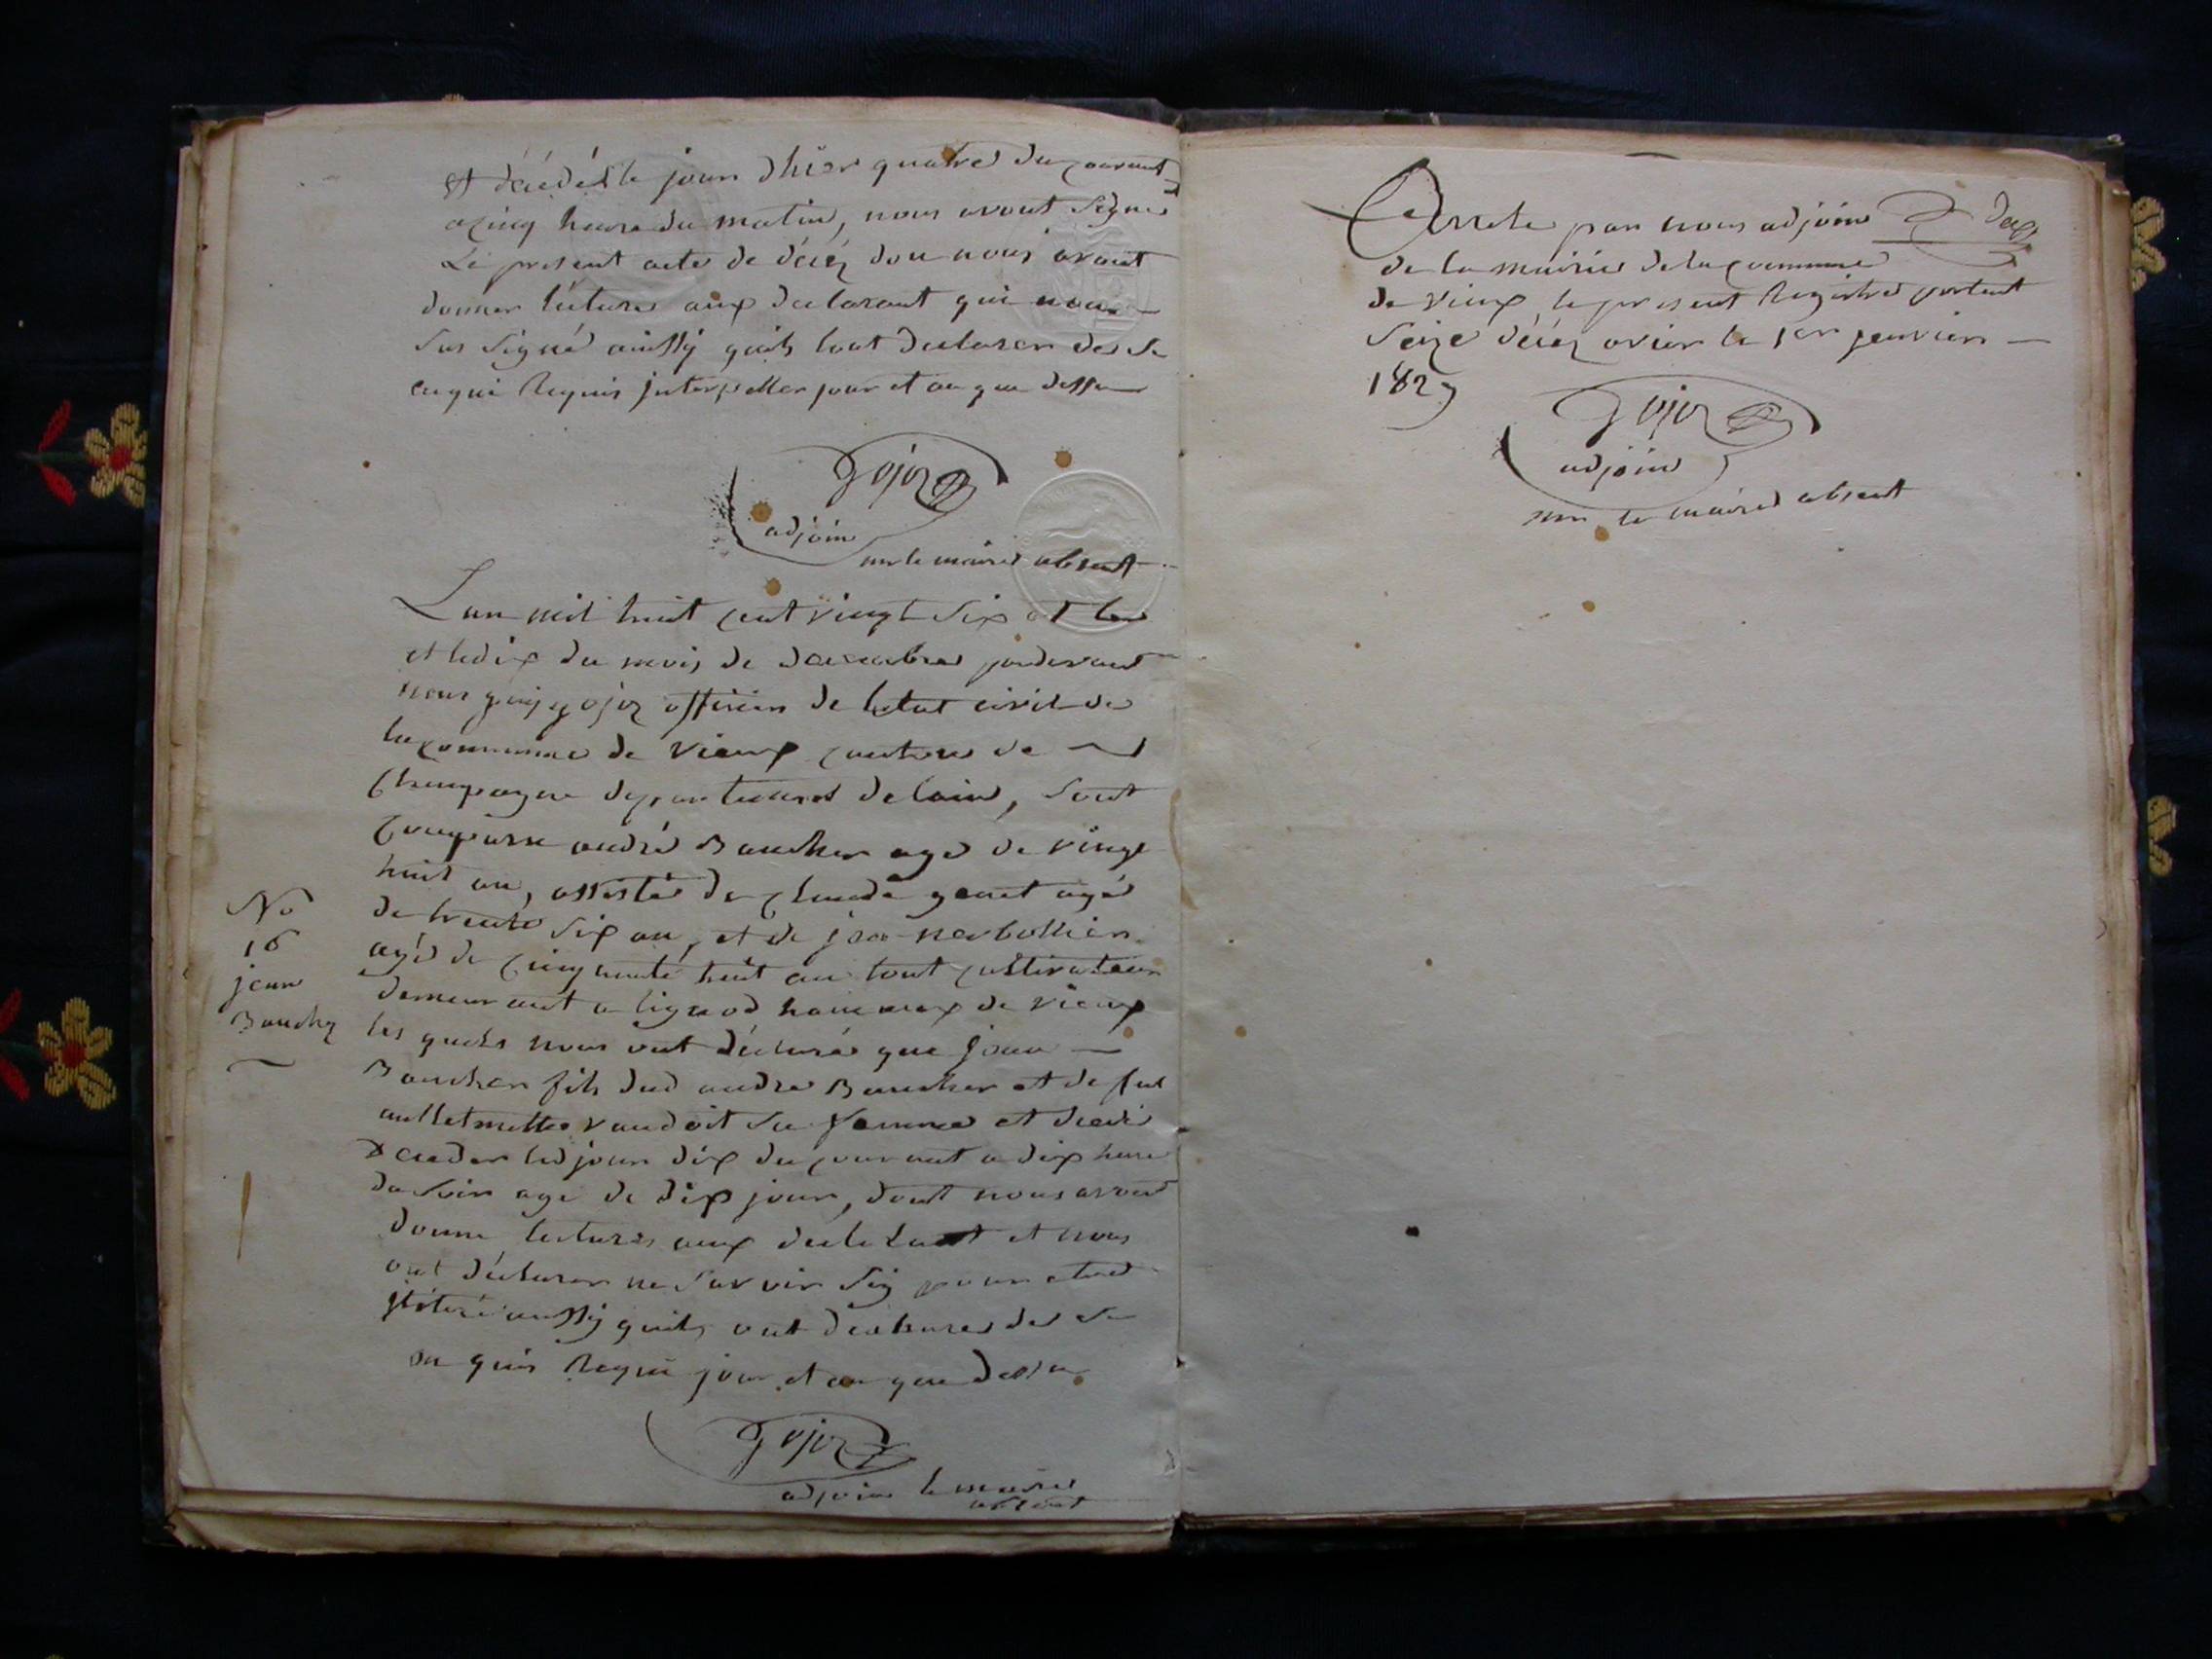 et décédé le jour dhier quatre du courant
a cinq heure du matin, nous avont Signe
Le present acte de décéz dou nous avont
donner lécture aux declarant qui non
sus Signé ainssy quils lont declarer de Se
requis interpeller jour et an que dessu
Gojoz
adjoin
mr le maire absent
Lan mil huit cent vingt Six et le
et le dix du mois de decembre pardevant
nous gojoz officier de letat civil de
la commune de Vieux canton de
Champagne departement de lain, Sont
Comparu andré Baucher age de vingt
huit an, assisté de Claude genet agé
de trente Six an, et de
agé de cinquante huit an tout cultivateur
demeurant a lignod hameaux de vieux
les quels nous ont déclaré que jean
Baucher fils dud andré Baucher et de
vaudoit Sa femme et
deceder led jour dix du courant a dix heure
du Soir age de dix jour, dont nous avont
donne lecture aux declarant et nous
ont déclarer ne Savoir Sig pour etre
ainssy quils ont declarer de Se
requi jour et an que dessu
Gojoz
adjoin le maire
absent
No
16
jean
Bauchez
Arrete par nous adjoin
de la mairie de la commune
de vieux le present Registre portent
Seize décéz a vieu le 1er janvier
1827
Gojoz
adjoin
mr le maire absent